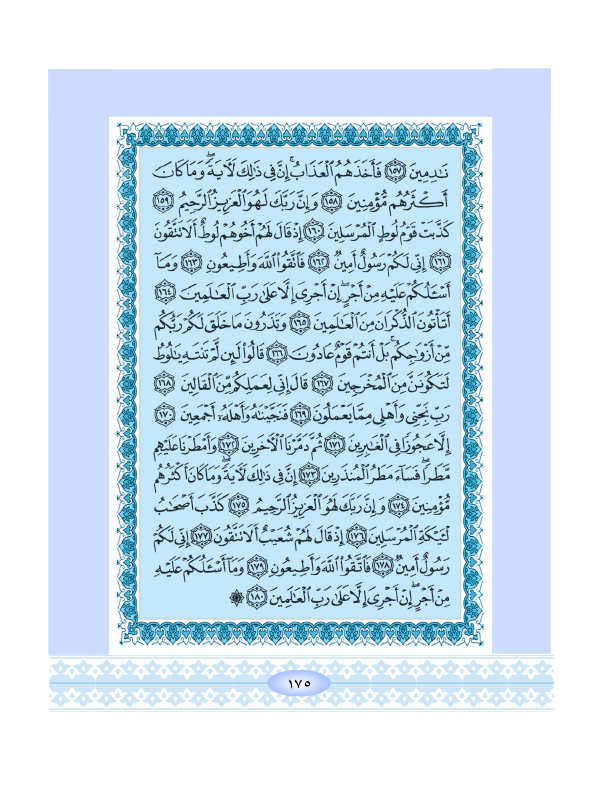 نَـٰدِمِينَ ١٥٧ فَأَخَذَهُمُ الْعَذَابُ ۚ إِنَّ فِي ذَٰلِكَ لَآيَةً ۖ وَمَا كَانَ
أَكْثَرُهُم مُّؤْمِنِينَ ١٥٨ وَإِنَّ رَبَّكَ لَهُوَ الْعَزِيزُ الرَّحِيمُ ١٥٩
كَذَّبَتْ قَوْمُ لُوطٍ الْمُرْسَلِينَ ١٦٠ إِذْ قَالَ لَهُمْ أَخُوهُمْ لُوطٌ أَلَا تَتَّقُونَ
١٦١ إِنِّي لَكُمْ رَسُولٌ أَمِينٌ ١٦٢ فَاتَّقُوا اللَّهَ وَأَطِيعُونِ ١٦٣ وَمَا
أَسْـَٔلُكُمْ عَلَيْهِ مِنْ أَجْرٍ ۖ إِنْ أَجْرِيَ إِلَّا عَلَىٰ رَبِّ الْعَـٰلَمِينَ ١٦٤
أَتَأْتُونَ الذُّكْرَانَ مِنَ الْعَـٰلَمِينَ ١٦٥ وَتَذَرُونَ مَا خَلَقَ لَكُمْ رَبُّكُم
مِّنْ أَزْوَٰجِكُم ۚ بَلْ أَنتُمْ قَوْمٌ عَادُونَ ١٦٦ قَالُوا لَئِن لَّمْ تَنتَهِ يَـٰلُوطُ
لَتَكُونَنَّ مِنَ الْمُخْرَجِينَ ١٦٧ قَالَ إِنِّي لِعَمَلِكُم مِّنَ الْقَالِينَ ١٦٨
رَبِّ نَجِّنِي وَأَهْلِي مِمَّا يَعْمَلُونَ ١٦٩ فَنَجَّيْنَـٰهُ وَأَهْلَهُۥ أَجْمَعِينَ ١٧٠
إِلَّا عَجُوزًا فِي الْغَـٰبِرِينَ ١٧١ ثُمَّ دَمَّرْنَا الْآخَرِينَ ١٧٢ وَأَمْطَرْنَا عَلَيْهِم
مَّطَرًا ۖ فَسَآءَ مَطَرُ الْمُنذَرِينَ ١٧٣ إِنَّ فِي ذَٰلِكَ لَآيَةً ۖ وَمَا كَانَ أَكْثَرُهُم
مُّؤْمِنِينَ ١٧٤ وَإِنَّ رَبَّكَ لَهُوَ الْعَزِيزُ الرَّحِيمُ ١٧٥ كَذَّبَ أَصْحَـٰبُ
لْـَٔيْكَةِ الْمُرْسَلِينَ ١٧٦ إِذْ قَالَ لَهُمْ شُعَيْبٌ أَلَا تَتَّقُونَ ١٧٧ إِنِّي لَكُمْ
رَسُولٌ أَمِينٌ ١٧٨ فَاتَّقُوا اللَّهَ وَأَطِيعُونِ ١٧٩ وَمَا أَسْـَٔلُكُمْ عَلَيْهِ
مِنْ أَجْرٍ ۖ إِنْ أَجْرِيَ إِلَّا عَلَىٰ رَبِّ الْعَـٰلَمِينَ ١٨٠ ۞
١٧٥